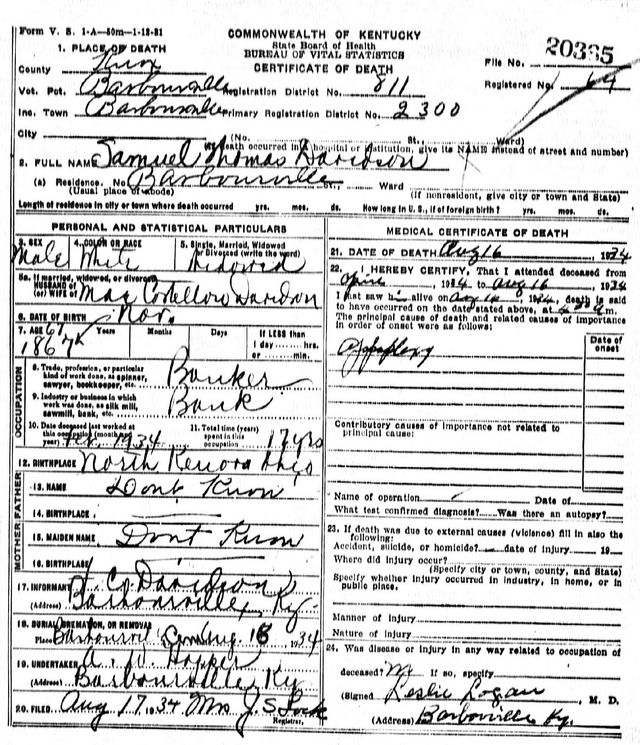 Form V. S. 1-A—50m—1-12-31
COMMONWEALTH OF KENTUCKY
State Board of Health
BUREAU OF VITAL STATISTICS
CERTIFICATE OF DEATH
File No. 20335
Registered No. 64
1. PLACE OF DEATH
County Knox
Vot. Pct. Barbourville Registration District No. 811
Inc. Town Barbourville Primary Registration District No. 2300
City (No. St., Ward)
(If death occurred in a hospital or institution, give its NAME instead of street and number)
2. FULL NAME Samuel Thomas Davidson
(a) Residence. No. Barbourville St., Ward
(Usual place of abode) (If nonresident, give city or town and State)
Length of residence in city or town where death occurred yrs. mos. ds. How long in U. S., if of foreign birth? yrs. mos. ds.
PERSONAL AND STATISTICAL PARTICULARS
3. SEX 4. COLOR OR RACE 5. Single, Married, Widowed
or Divorced (write the word)
Male White Widowed
5a. If married, widowed, or divorced
HUSBAND of
(or) WIFE of Mae Costellow Davidson
6. DATE OF BIRTH Nov.
7. AGE 67 Years Months Days If LESS than
1 day hrs.
or min.
1867
OCCUPATION
8. Trade, profession, or particular
kind of work done, as spinner,
sawyer, bookkeeper, etc. Banker
9. Industry or business in which
work was done, as silk mill,
sawmill, bank, etc. Bank
10. Date deceased last worked at
this occupation (month and
year) 1934
11. Total time (years)
spent in this
occupation 17 yrs
12. BIRTHPLACE North
FATHER
13. NAME Dont Know
14. BIRTHPLACE
MOTHER
15. MAIDEN NAME Dont Know
16. BIRTHPLACE
17. INFORMANT Davidson
(Address) Barbourville, Ky.
18. BURIAL, CREMATION, OR REMOVAL
Place Barbourvil Cem Aug 18 1934
19. UNDERTAKER A. M. Hopper
(Address) Barbourville Ky
20. FILED Aug 17 1934 Mrs J. S. Lock
Registrar.
MEDICAL CERTIFICATE OF DEATH
21. DATE OF DEATH Aug 16, 1934
22. I HEREBY CERTIFY, That I attended deceased from
April, 1934 to Aug 16 1934
I last saw him alive on Aug 14, 1934, death is said
to have occurred on the date stated above, at m.
The principal cause of death and related causes of importance
in order of onset were as follows:
Date of
onset
Apoplexy
Contributory causes of importance not related to
principal cause:
Name of operation Date of
What test confirmed diagnosis? Was there an autopsy?
23. If death was due to external causes (violence) fill in also the
following:
Accident, suicide, or homicide? date of injury 19
Where did injury occur?
(Specify city or town, county, and State)
Specify whether injury occurred in industry, in home, or in
public place.
Manner of injury
Nature of injury
24. Was disease or injury in any way related to occupation of
deceased? No If so, specify
(Signed Leslie Logan, M. D.
(Address) Barbourville Ky.